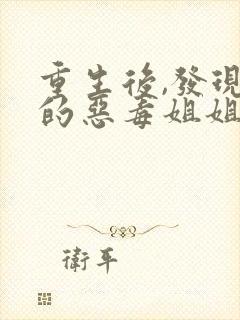 重生後,發現
的惡毒姐姐
衛平